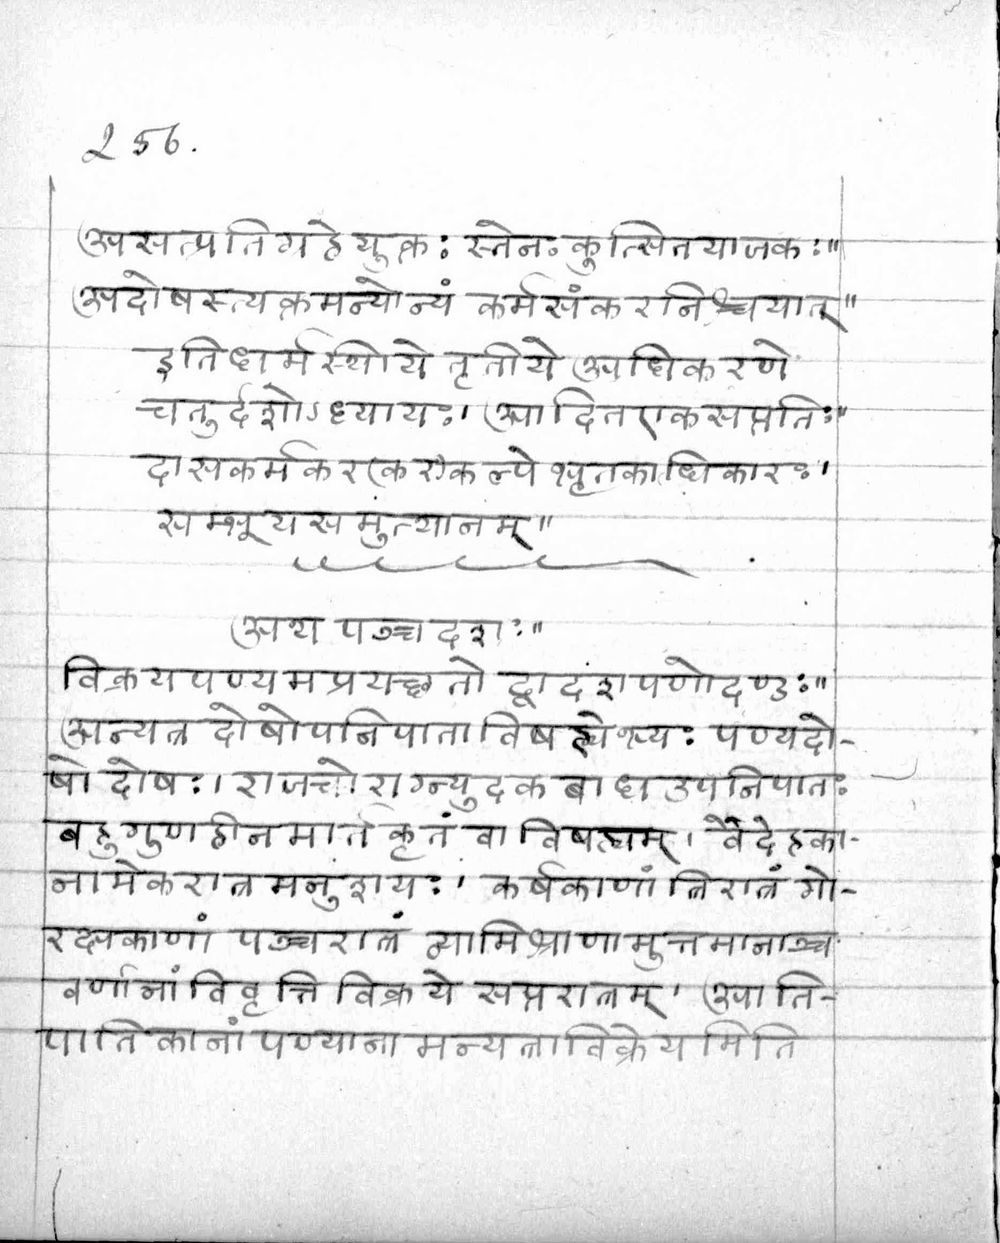 256.
असत्प्रतिग्रहे युक्तः स्तेनः कुत्सितयाजकः॥
अदोषस्त्यक्तमन्योन्यं कर्मसंकरनिश्चयात्॥
इति धर्मस्थीये तृतीये अधिकरणे
चतुर्दशोऽध्यायः। आदित एकसप्ततिः॥
दासकर्मकरकल्पे भृतकाधिकारः।
सम्भूयसमुत्थानम्॥
अथ पञ्चदशः॥
विक्रयपण्यमप्रयच्छतो द्वादशपणोदण्डः॥
अन्यत्र दोषोपनिपाताविषह्येभ्यः पण्यदो-
षो दोषः। राजचोराग्न्युदकबाध उपनिपातः
बहुगुणहीनमार्तकृतं वा विषह्यम्। वैदेहका-
नामेकरात्रमनुशयः। कर्षकाणां त्रिरात्रं गो-
रक्षकाणां पञ्चरात्रं व्यामिश्राणामुत्तमानाञ्च
वर्णानां विवृत्ति विक्रये सप्तरात्रम्। आति-
पातिकानां पण्यानामन्यत्राविक्रेयमिति